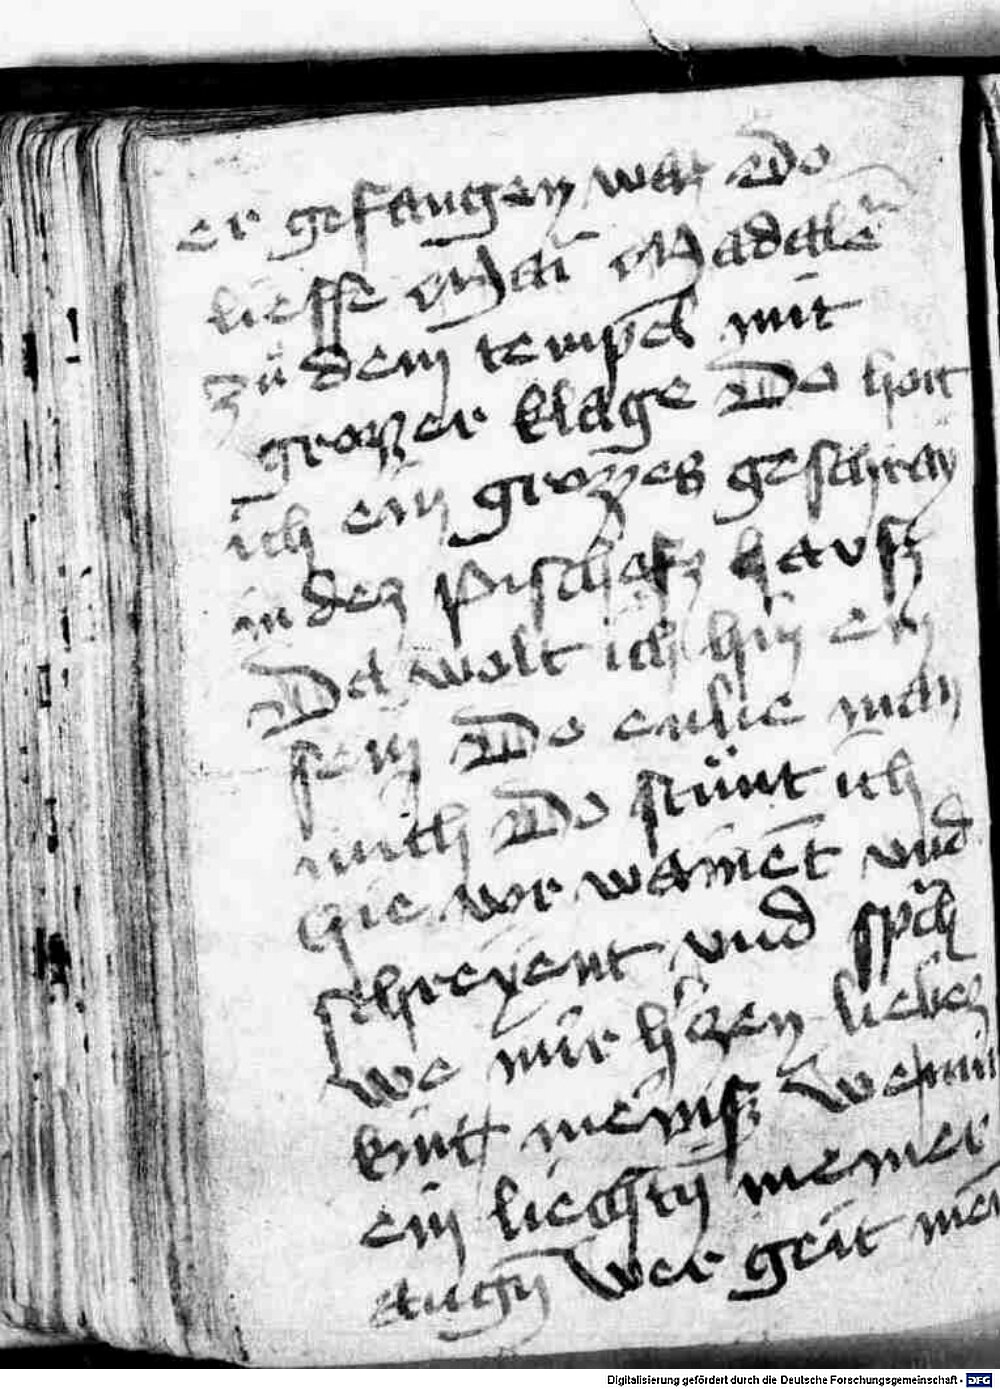 er gefangen waz Do
lieffe Mai Madale
zü dem tempel mit
grozzer klage Do hort
ich ein grozzes geschray
in dez pischafz hausz
Da wolt ich hin ein
sein Do enlie man
mich Do stünt ich
hie vor wainet und
schreyent und sprach
we mir herzen liebez
kint meinsz we mir
ein liechtn meiner
augn wer geit mein
Digitalisierung gefördert durch die Deutsche Forschungsgemeinschaft - DFG